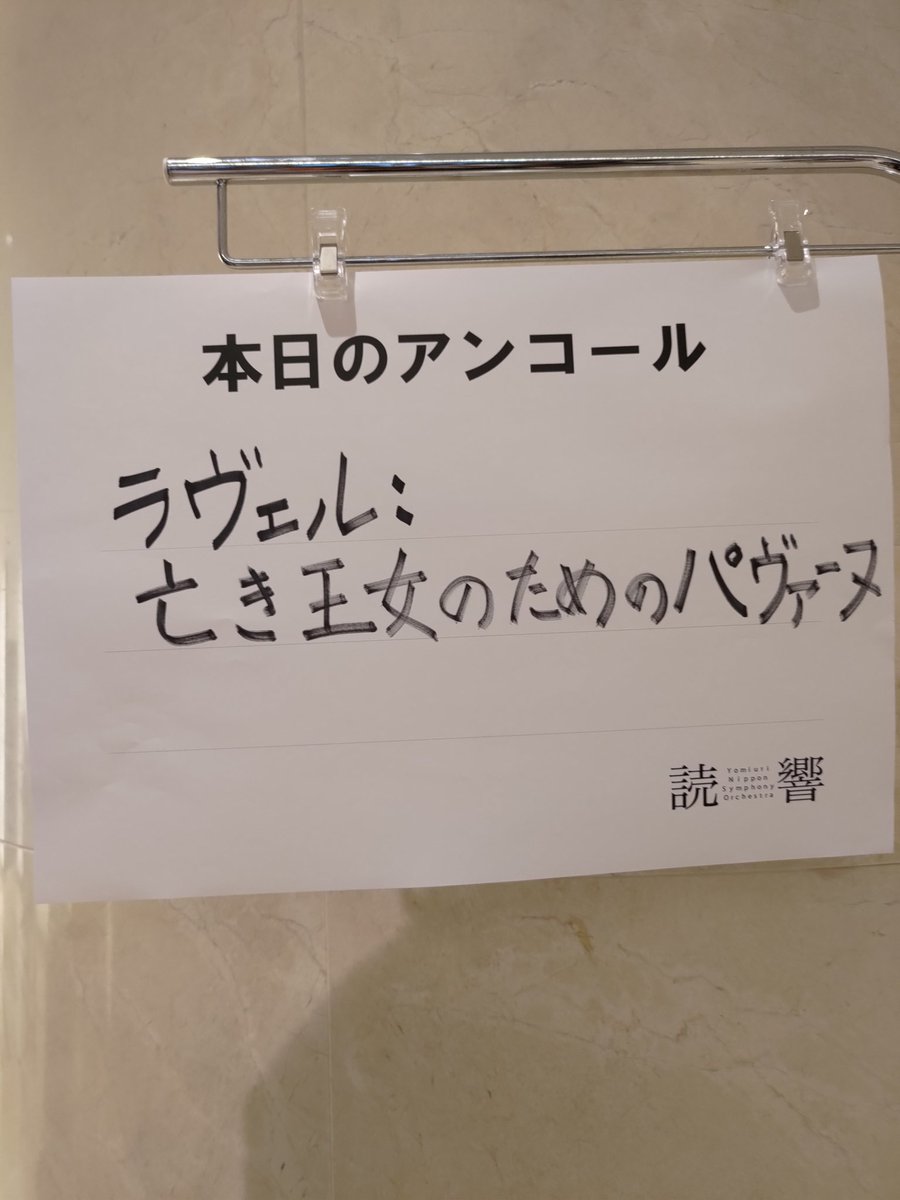 本日のアンコール
ラヴェル:
亡き王女のためのパヴァーヌ
読響
Yomiuri
Nippon
Symphony
Orchestra